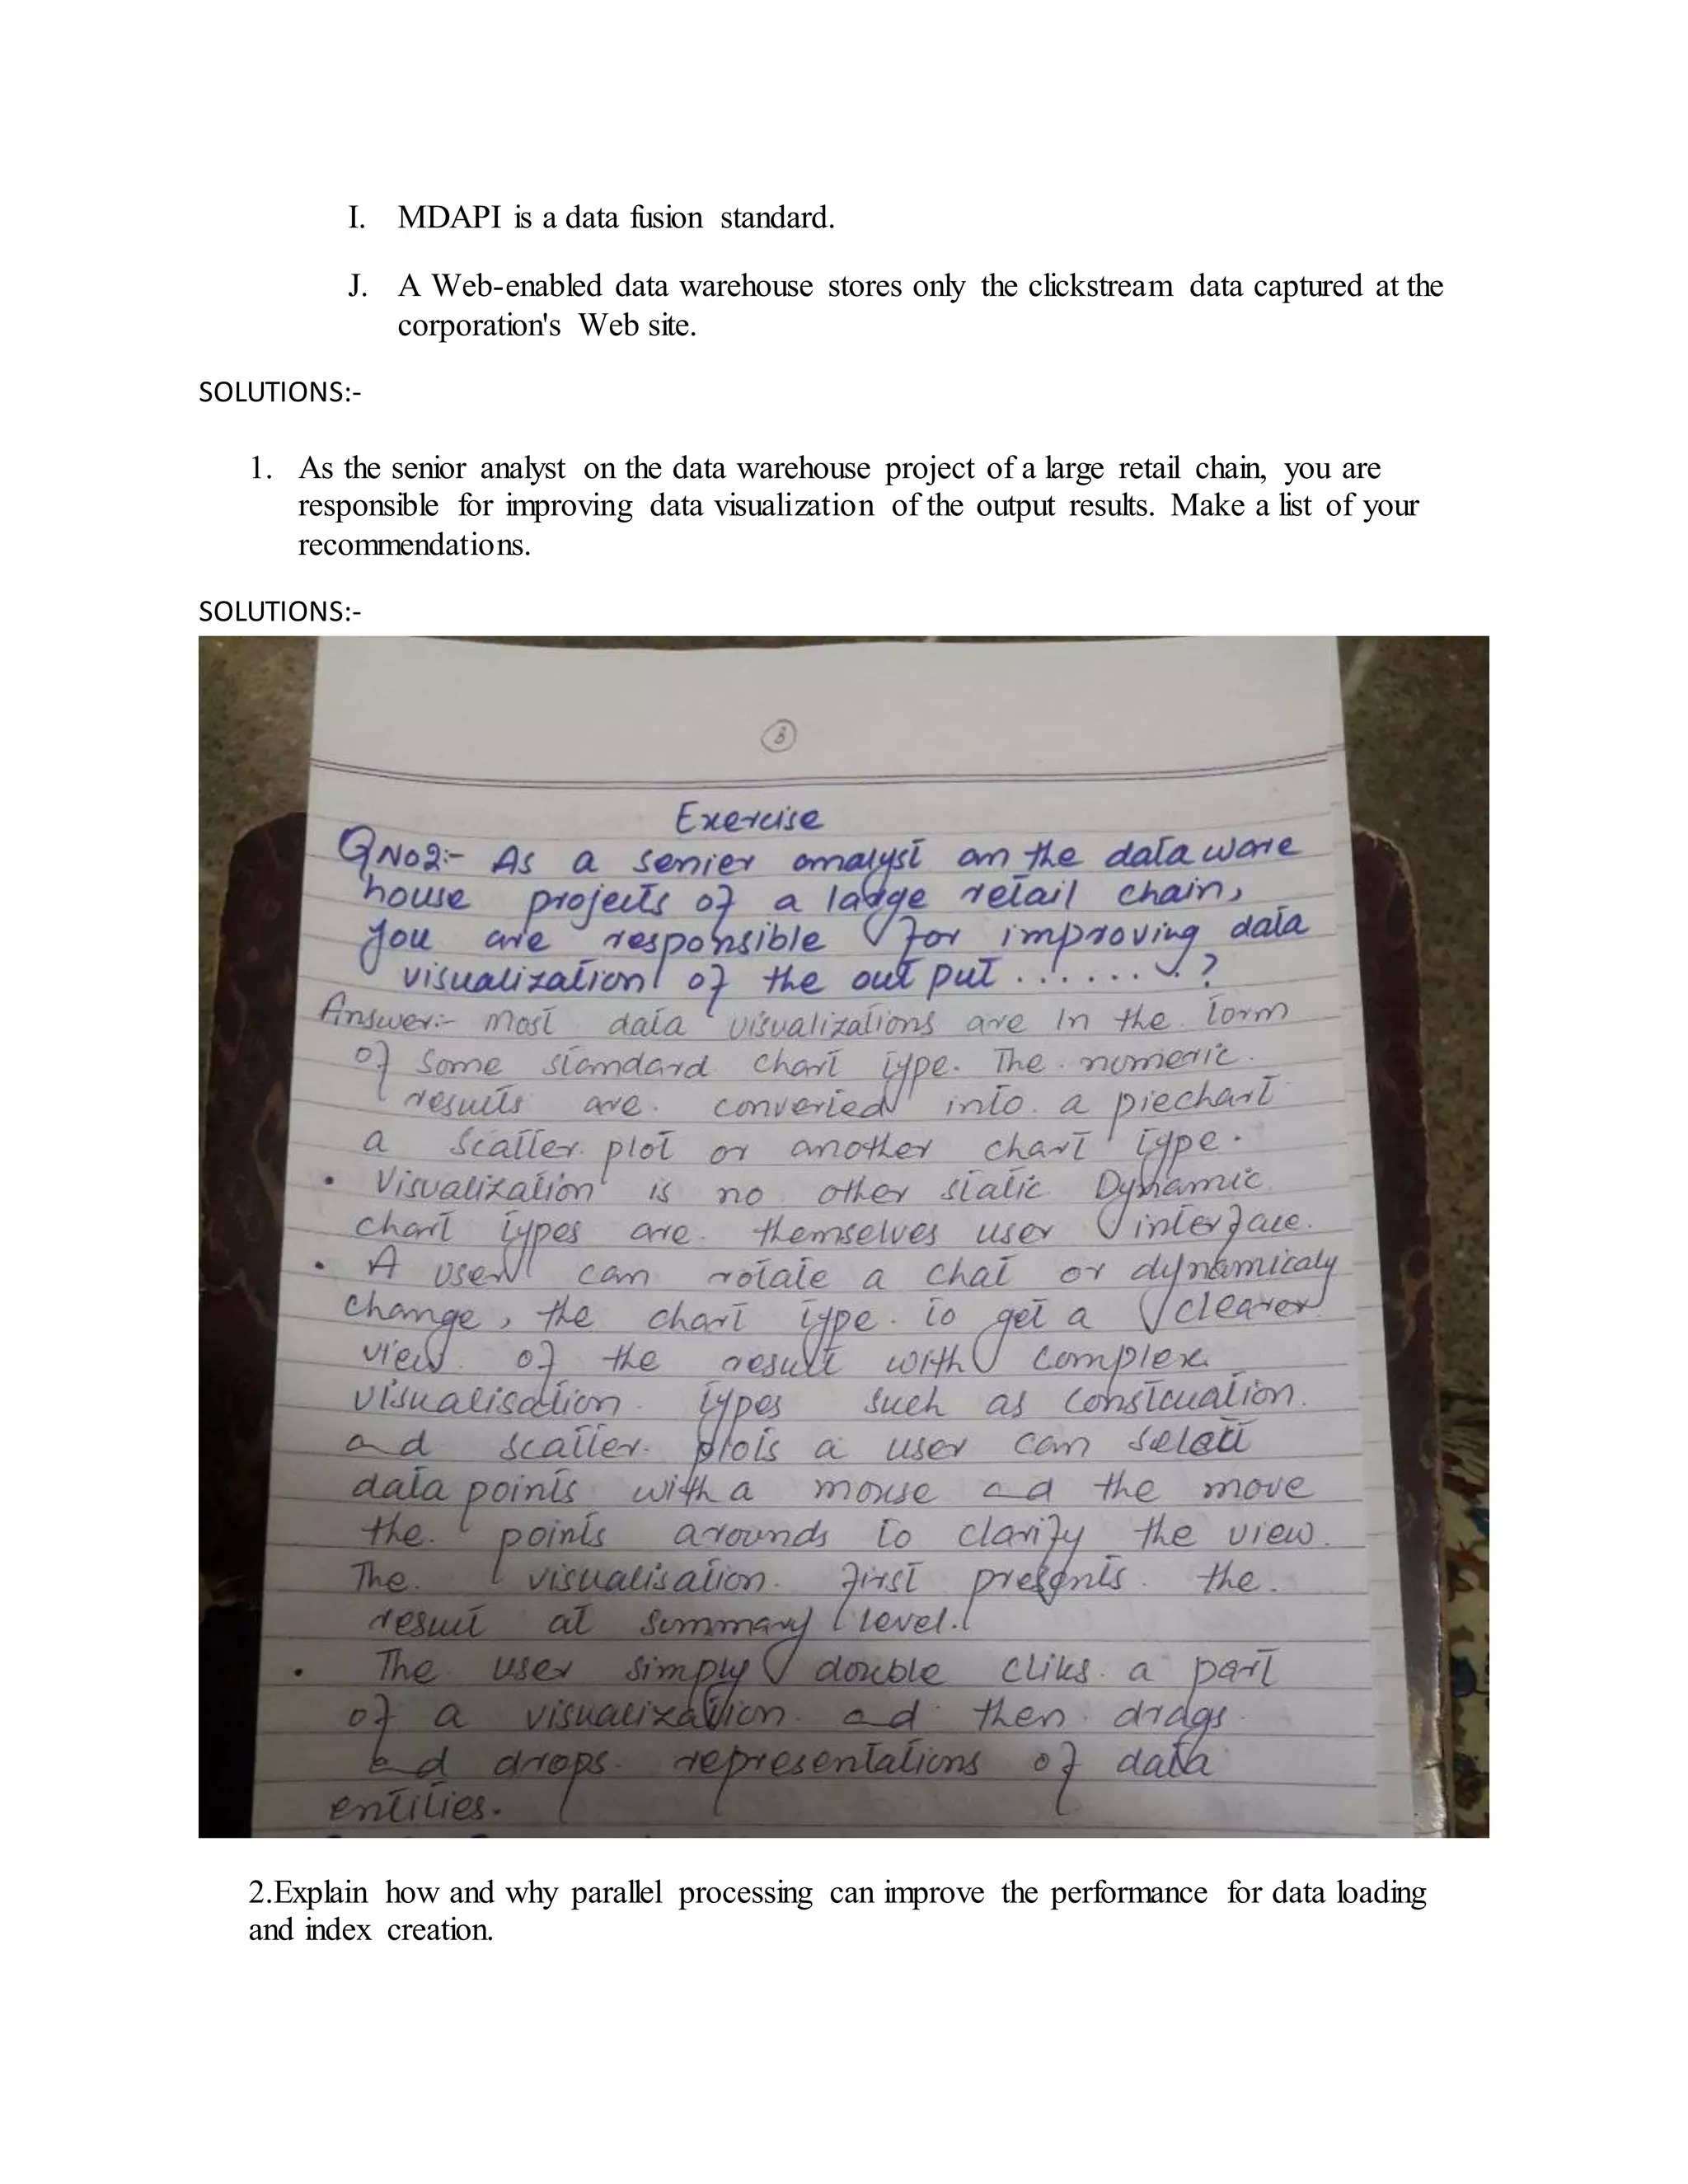 I. MDAPI is a data fusion standard.
J. A Web-enabled data warehouse stores only the clickstream data captured at the
corporation's Web site.
SOLUTIONS:-
1. As the senior analyst on the data warehouse project of a large retail chain, you are
responsible for improving data visualization of the output results. Make a list of your
recommendations.
SOLUTIONS:-
Exercise
QNo2:- As a senier analyst on the data ware
house projects of a large retail chain,
you are responsible for improving data
visualization of the out put ......?
Answer:- Most data visualizations are In the form
of some standard chart type. The numeric
results are converted into a piechart
a scatter plot or another chart type.
• Visualization is no other static Dynamic
chart types are themselves user interface.
• A user can rotate a chat or dynamicaly
change, the chart type to get a clearer
view of the result with complex
visualisation types such as
and scatter plots a user can select
data points with a mouse ad the move
the points arounds to clarify the view.
The visualisation first presents the
result at summary level.
• The user simply double cliks a part
of a visualization ad then drags
ad drops representations of data
entities.
2.Explain how and why parallel processing can improve the performance for data loading
and index creation.